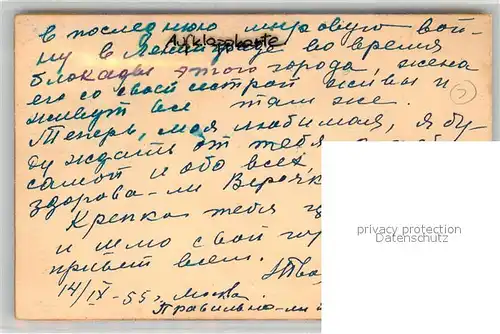 в последнюю мировую вой-
ну в Ленинграде во время
Aufklappkarte
блокады этого города, жена
его со своей сестрой живы и
живут все там же.
Теперь, моя любимая, я бу-
ду ждать от тебя
самой и обо всех,
здорова-ли Верочк
Крепко тебя
и шлю свой
привет всем.
14/IX-55, Москва.
Правильно-ли
privacy protection
Datenschutz